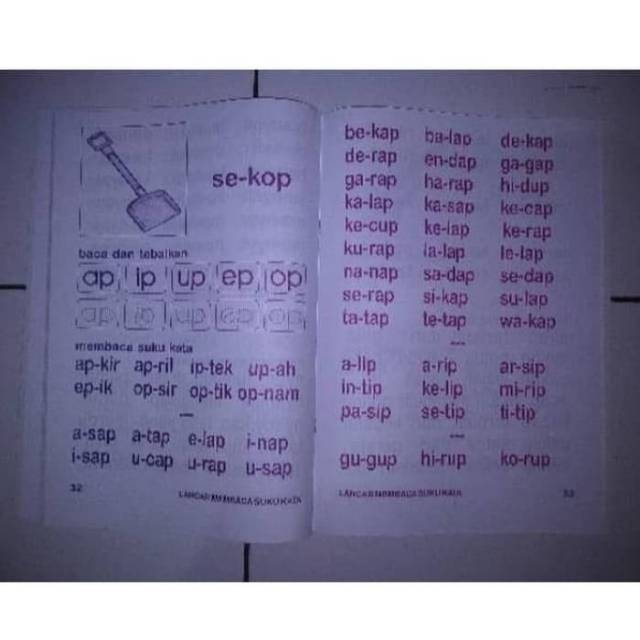 se-kop
baca dan tebalkan
ap ip up ep op
ap ip up ep op
membaca suku kata
ap-kir ap-ril ip-tek up-ah
ep-ik op-sir op-tik op-nam
a-sap a-tap e-lap i-nap
i-sap u-cap u-rap u-sap
32 LANCAR MEMBACA SUKU KATA
be-kap ba-lap de-kap
de-rap en-dap ga-gap
ga-rap ha-rap hi-dup
ka-lap ka-sap ke-cap
ke-cup ke-lap ke-rap
ku-rap la-lap le-lap
na-nap sa-dap se-dap
se-rap si-kap su-lap
ta-tap te-tap wa-kap
a-lip a-rip ar-sip
in-tip ke-lip mi-rip
pa-sip se-tip ti-tip
gu-gup hi-rup ko-rup
LANCAR MEMBACA SUKU KATA 33